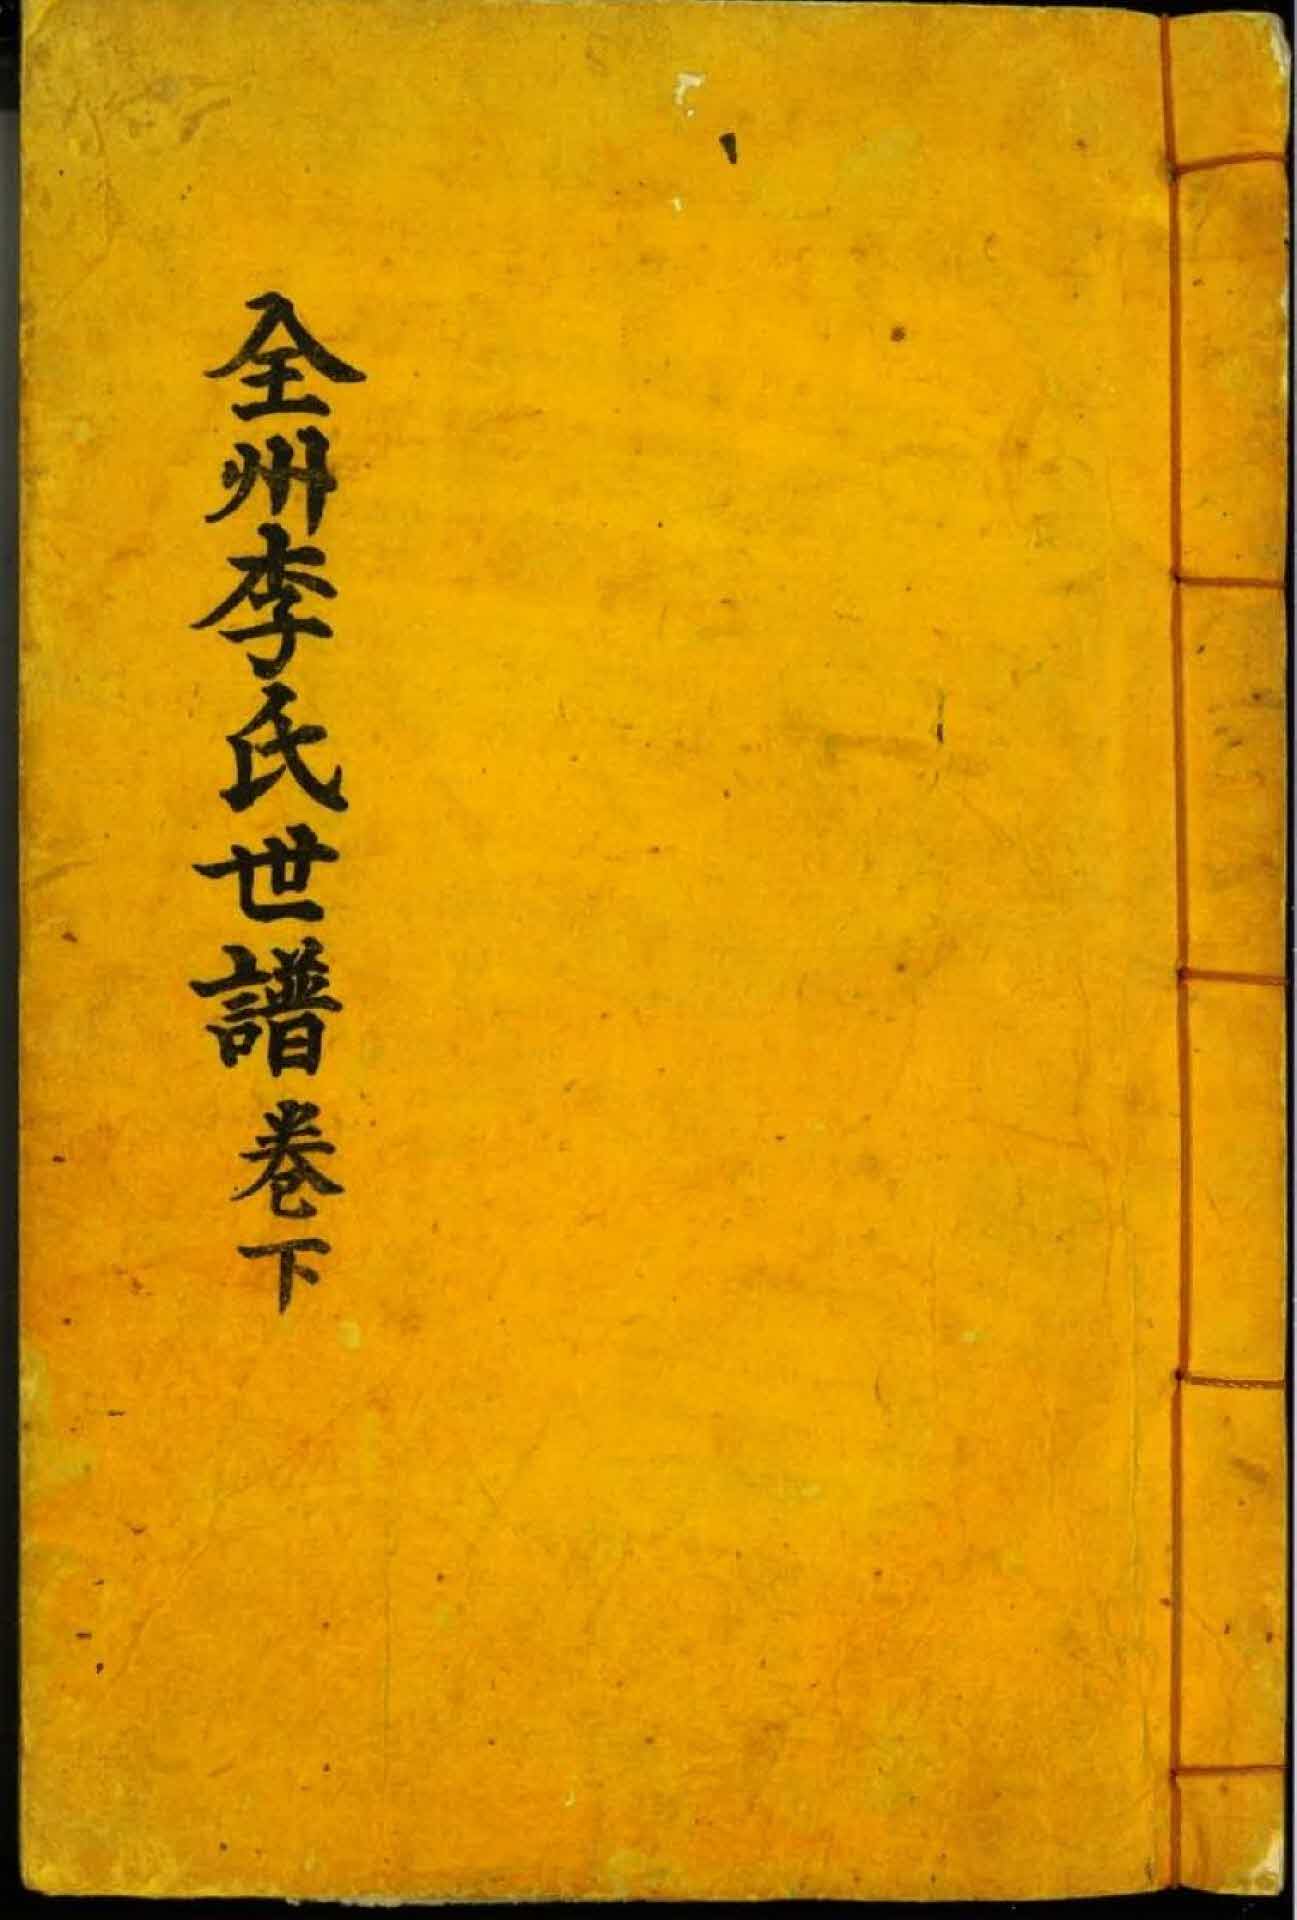 全州李氏世譜卷下